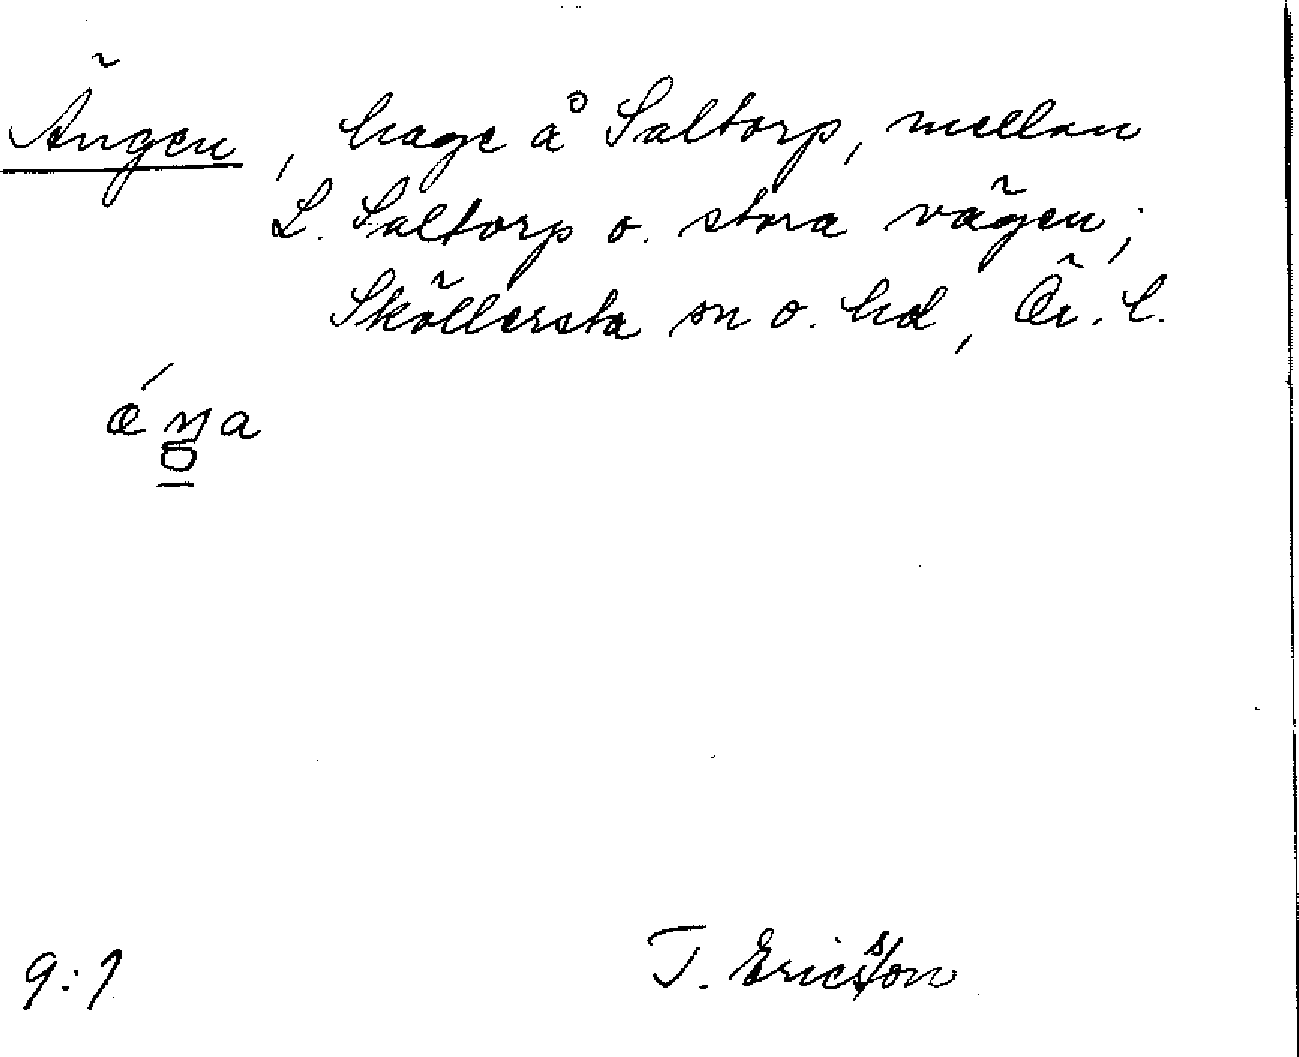 Ängen, hage å Saltorp, mellan
L. Saltorp o. stora vägen;
Sköllersta sn o. hd, Ör. l.
ǽŋa
9:1 T. Ericsson